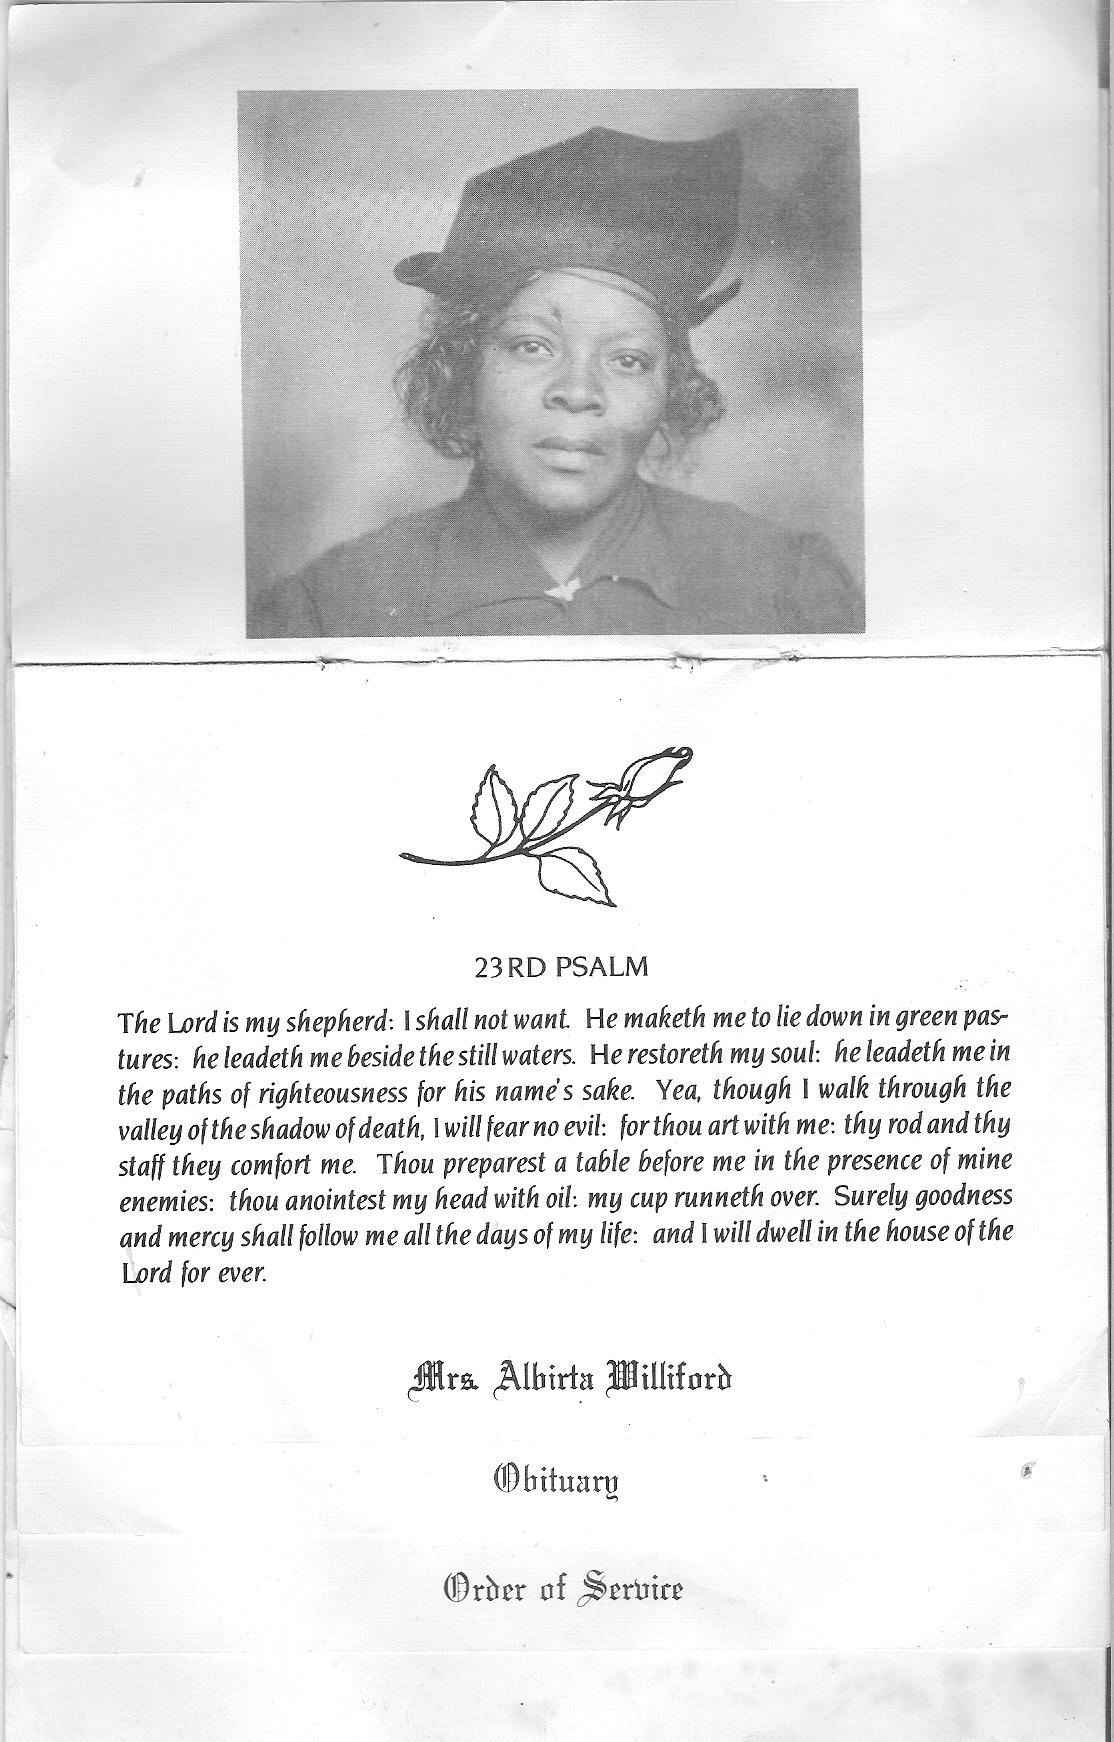 23RD PSALM
The Lord is my shepherd: I shall not want. He maketh me to lie down in green pas-
tures: he leadeth me beside the still waters. He restoreth my soul: he leadeth me in
the paths of righteousness for his name's sake. Yea, though I walk through the
valley of the shadow of death, I will fear no evil: for thou art with me: thy rod and thy
staff they comfort me. Thou preparest a table before me in the presence of mine
enemies: thou anointest my head with oil: my cup runneth over. Surely goodness
and mercy shall follow me all the days of my life: and I will dwell in the house of the
Lord for ever.
Mrs. Albirta Williford
Obituary
Order of Service